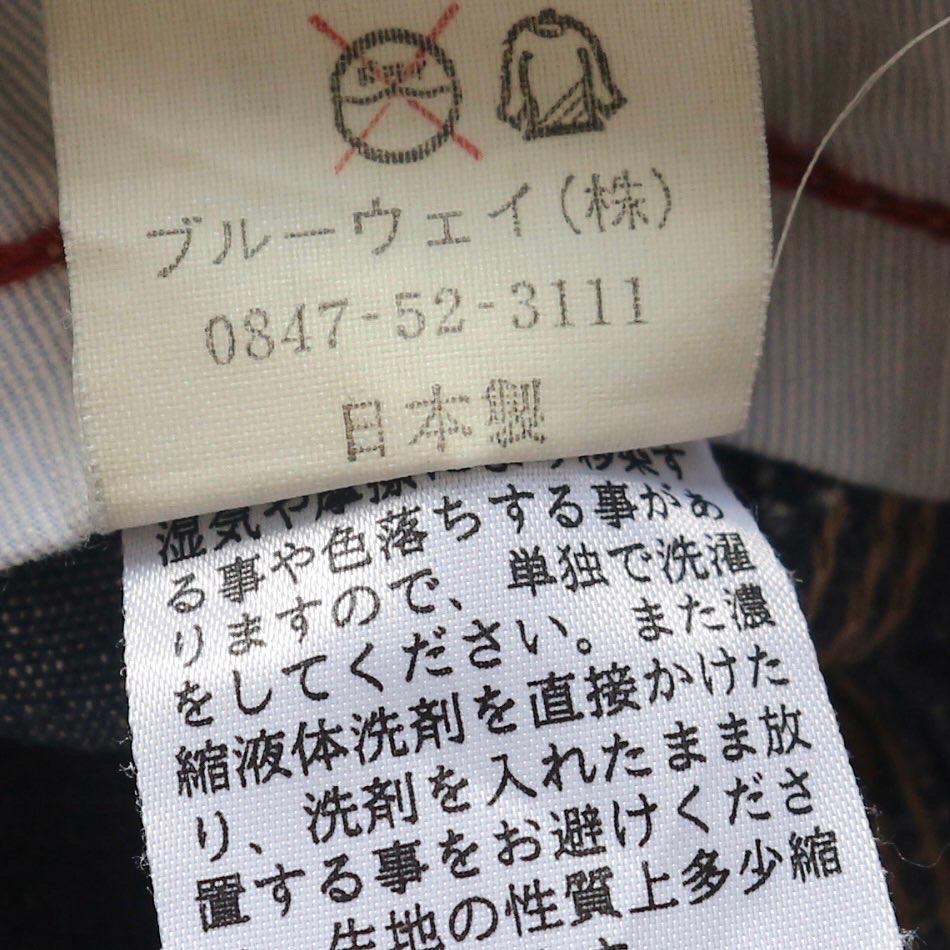 ブルーウェイ(株)
0847-52-3111
日本製
湿気や摩擦により移染す
る事や色落ちする事があ
りますので、単独で洗濯
をしてください。また濃
縮液体洗剤を直接かけた
り、洗剤を入れたまま放
置する事をお避けくださ
生地の性質上多少縮